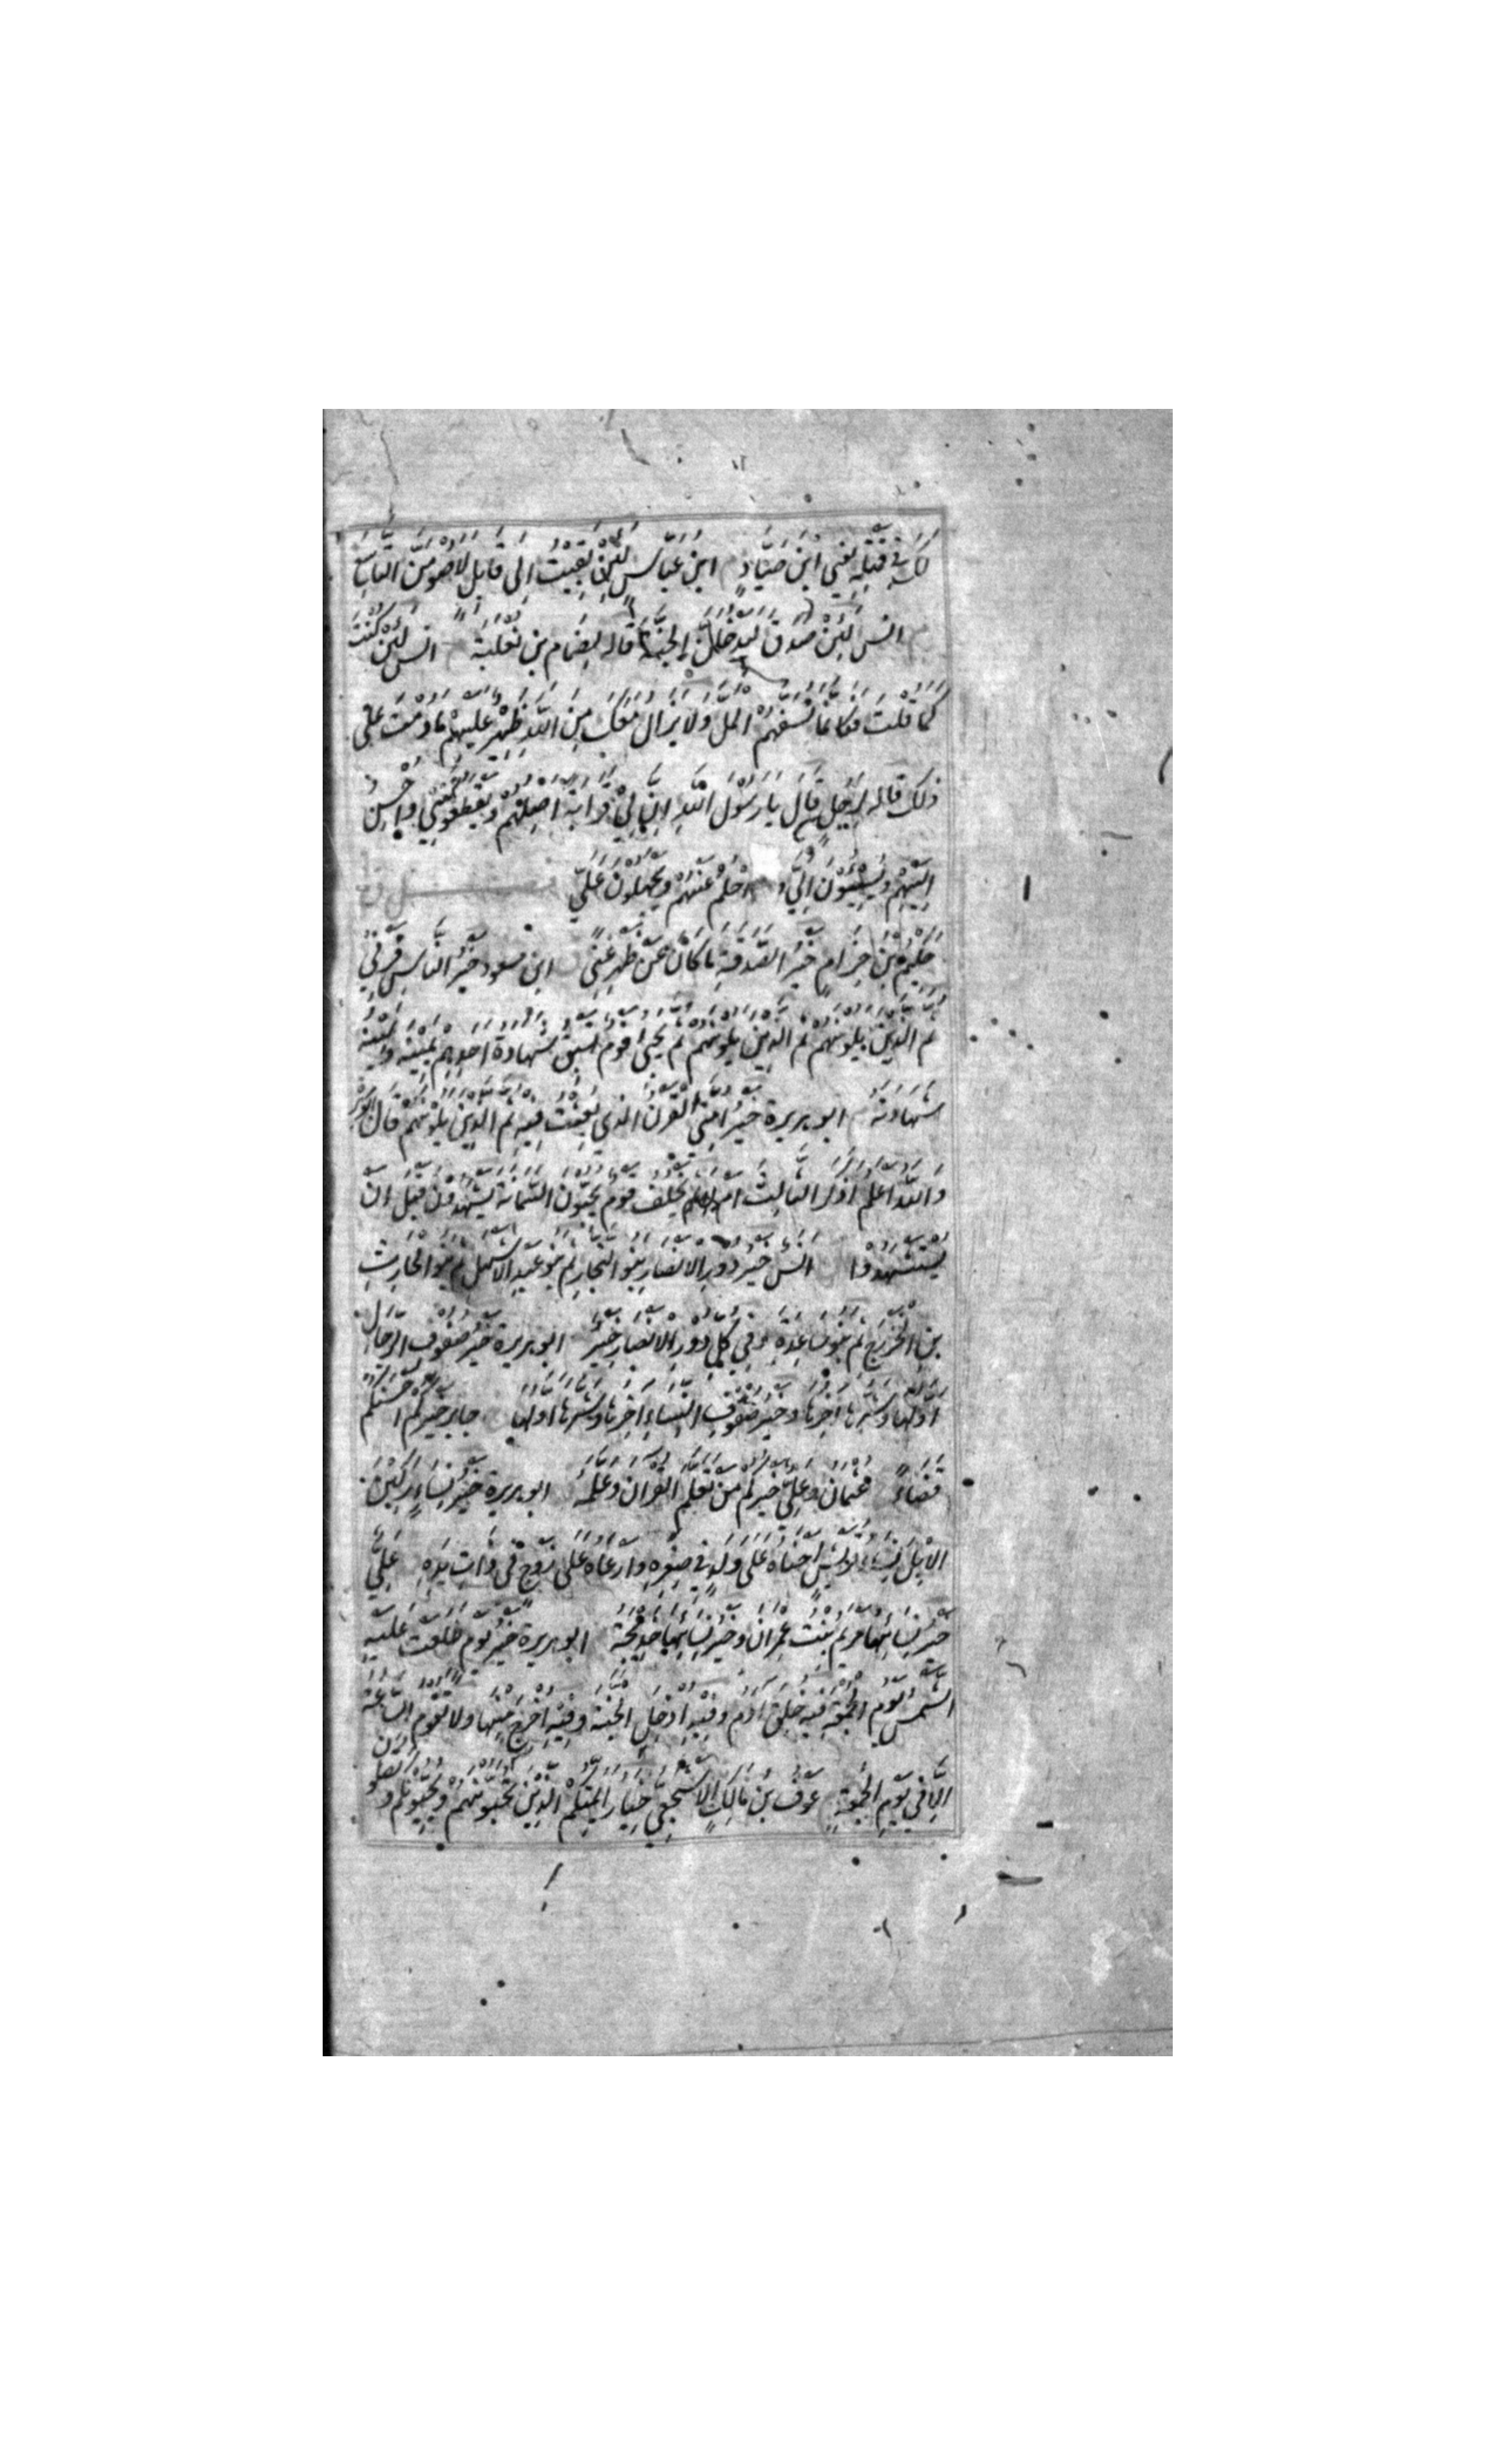 لَكَ فِي قَتْلِهِ يَعْنِي ابْنَ صَيَّادٍ ابْنِ عَبَّاسٍ لَئِنْ بَقِيْتُ اِلَى قَابِلٍ لَاَصُوْمَنَّ التَّاسِعَ
انس لَئِنْ صَدَقَ لَيَدْخُلَنَّ الْجَنَّةَ قاله لِضِمَام بن ثَعْلَبَة انس لَئِنْ كُنْتَ
كَمَا قُلْتَ فَكَاَنَّمَا تُسِفُّهُمْ الْمَلَّ وَلَا يَزَالُ مَعَكَ مِنَ اللّٰهِ ظَهِيْرٌ عَلَيْهِمْ مَا دُمْتَ عَلَى
ذلِكَ قاله لِرَجُلٍ قَالَ يَا رَسُوْلَ اللّٰهِ اِنَّ لِيْ قَرَابَةً اَصِلُهُمْ وَيَقْطَعُوْنَنِيْ وَاُحْسِنُ
اِلَيْهِمْ وَيُسِيْئُوْنَ اِلَيَّ وَ اَحْلُمُ عَنْهُمْ وَيَجْهَلُوْنَ عَلَيَّ
حَكِيْمُ بْنُ حِزَامٍ خَيْرُ الصَّدَقَةِ مَا كَانَ عَنْ ظَهْرِ غِنًى ابن مسعود خَيْرُ النَّاسِ قَرْنِيْ
ثُمَّ الَّذِيْنَ يَلُوْنَهُمْ ثُمَّ الَّذِيْنَ يَلُوْنَهُمْ ثُمَّ يَجِيْءُ قَوْمٌ تَسْبِقُ شَهَادَةُ اَحَدِهِمْ يَمِيْنَهُ وَيَمِيْنُهُ
شَهَادَتَهُ ابو هريرة خَيْرُ اُمَّتِيْ الْقَرْنُ الَّذِيْ بُعِثْتُ فِيْهِ ثُمَّ الَّذِيْنَ يَلُوْنَهُمْ قَالَ
وَاللّٰهُ اَعْلَمُ اَذَكَرَ الثَّالِثَ اَمْ لَا ثم يَخْلُفُ قَوْمٌ يُحِبُّوْنَ السَّمَانَةَ يَشْهَدُوْنَ قَبْلَ اَنْ
يُسْتَشْهَدُوْا انس خَيْرُ دُوْرِ الْاَنْصَارِ بَنُو النَّجَّارِ ثُمَّ بَنُو عَبْدِ الْاَشْهَلِ ثُمَّ بَنُو الْحَارِثِ
بْنِ الْخَزْرَجِ ثُمَّ بَنُو سَاعِدَةَ وَفِيْ كُلِّ دُوْرِ الْاَنْصَارِ خَيْرٌ ابو هريرة خَيْرُ صُفُوْفِ الرِّجَالِ
اَوَّلُهَا وَشَرُّهَا آخِرُهَا وَخَيْرُ صُفُوْفِ النِّسَاءِ آخِرُهَا وَشَرُّهَا اَوَّلُهَا جابر خَيْرُكُمْ اَحْسَنُكُمْ
قَضَاءً عُثْمَانُ وَعَلِيٌّ خَيْرُكُمْ مَنْ تَعَلَّمَ الْقُرْآنَ وَعَلَّمَهُ ابو هريرة خَيْرُ نِسَاءٍ رَكِبْنَ
الْاِبِلَ نِسَاءُ قُرَيْشٍ اَحْنَاهُ عَلَى وَلَدٍ فِي صِغَرِهِ وَاَرْعَاهُ عَلَى زَوْجٍ فِي ذَاتِ يَدِهِ عَلِيٌّ
خَيْرُ نِسَائِهَا مَرْيَمُ بِنْتُ عِمْرَانَ وَخَيْرُ نِسَائِهَا خَدِيْجَةُ ابو هريرة خَيْرُ يَوْمٍ طَلَعَتْ عَلَيْهِ
الشَّمْسُ يَوْمُ الْجُمُعَةِ فِيْهِ خُلِقَ آدَمُ وَفِيْهِ اُدْخِلَ الْجَنَّةَ وَفِيْهِ اُخْرِجَ مِنْهَا وَلَا تَقُوْمُ السَّاعَةُ
اِلَّا فِي يَوْمِ الْجُمُعَةِ عَوْفُ بْنُ مَالِكٍ الْاَشْجَعِيُّ خِيَارُ اَئِمَّتِكُمْ الَّذِيْنَ تُحِبُّوْنَهُمْ وَيُحِبُّوْنَكُمْ وَ